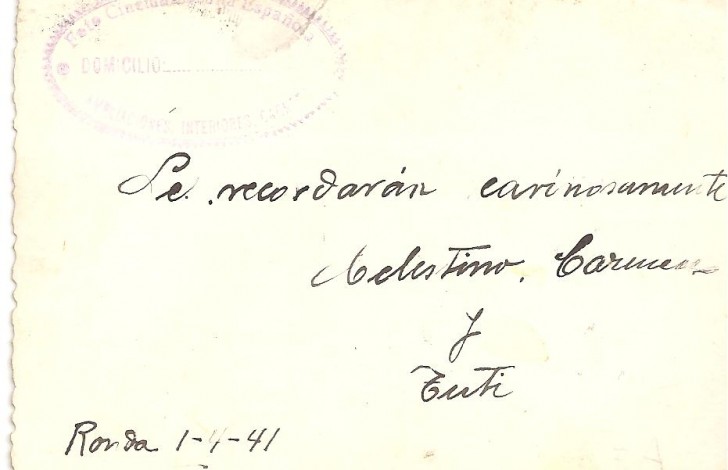 Foto Cinema Española
DOMICILIO
AMPLIACIONES, INTERIORES, CASA
Se recordarán cariñosamente
Celestino, Carmen
y
Tuti
Ronda 1-4-41